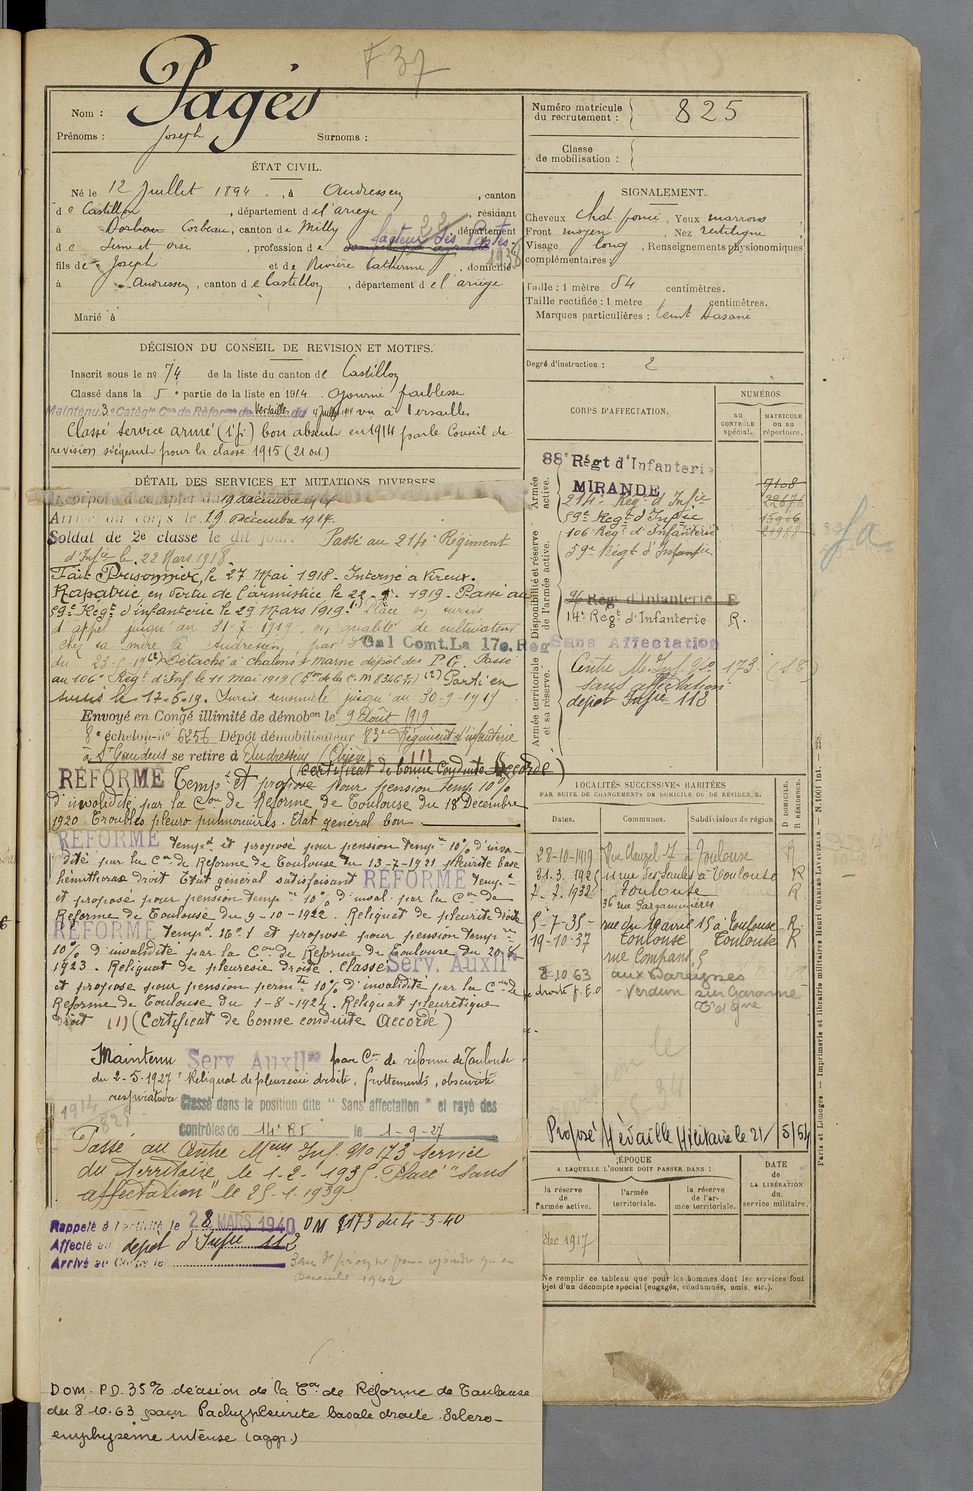 F 37
Nom : Pagès
Prénoms : Joseph Surnoms :
ÉTAT CIVIL.
Né le 12 Juillet 1894 , à Audressein , canton
de Castillon , département de l'ariège , résidant
à Corbeau, canton de Milly , département
de Seine et Oise , profession de facteur des Postes 1938
fils de Joseph et de Rivière Catherine , domiciliés
à Audressein , canton de Castillon , département de l'ariège
Marié à
DÉCISION DU CONSEIL DE REVISION ET MOTIFS.
Inscrit sous le no 74 de la liste du canton de Castillon
Classé dans la 5e partie de la liste en 1914 ajourné faiblesse
Maintenu 3e Catégie Con de Réforme de Versailles du vu à Versailles
Classé Service armé (1 f) bon absent en 1914 par le Conseil de
revision siégeant pour la classe 1915 (21 oct)
DÉTAIL DES SERVICES ET MUTATIONS DIVERSES
Incorporé à compter du 19 décembre 1914
Arrivé au corps le 19 Décembre 1914.
Soldat de 2e classe le dit jour. Passé au 214e Régiment
d'Infie le 22 Mars 1918.
Fait Prisonnier le 27 Mai 1918 - Interné à Vireux.
Rapatrié en Vertu de l'armistice le 1919. Passé au
59e Regt d'infanterie le 29 Mars 1919. (1) Placé en sursis
d'appel jusqu'au 31-7-1919 en qualité de cultivateur
chez sa mère à Audressein par Gal Comt. La 17e. Rég
du 23-5-19 (2) Détaché à Chalons s/ Marne dépot des P.G. Passé
au 106e Régt d'Inf le 11 Mai 1919 (2) Parti en
sursis le 17-6-19. Sursis renouvelé jusqu'au 30-9-1919
Envoyé en Congé illimité de démobon le 9 Août 1919
8e échelon no 6256 Dépôt démobilisateur 83e Régiment d'infanterie
à St Gaudens se retire à Audressein (Ariège) (1)
(certificat de bonne Conduite Accordé)
RÉFORMÉ Tempt et proposé pour pension temp 10%
d'invalidité par la Con de Réforme de Toulouse du 18 Décembre
1920 Troubles pleuro pulmonaires. Etat général bon
RÉFORMÉ tempt et proposé pour pension tempre 10% d'inva-
lidité par la Con de Réforme de Toulouse du 13-7-1921 pleurite base
hémithorax droit Etat général satisfaisant RÉFORMÉ Tempt
et proposé pour pension tempre 10% d'inval. par la Con de
Réforme de Toulouse du 9-10-1922. Reliquat de pleurite droite
RÉFORMÉ Tempt. et proposé pour pension tempre
10% d'invalidité par la Con de Réforme de Toulouse du 20-8-
1923. Reliquat de pleuresie droite. Classé Serv. Auxilre
et proposé pour pension permte 10% d'invalidité par la Con de
Réforme de Toulouse du 1-8-1924. Reliquat pleuretique
droit (1) (Certificat de bonne conduite Accordé)
Maintenu Serv. Auxilre par Con de réforme de Toulouse
du 2-5-1927 Reliquat de pleuresie droite, frottements, obscurité
respiratoire Classé dans la position dite " Sans affectation " et rayé des
contrôles du 14e RI le 1-9-27
1914
825
Passé au Centre Mem Inf. no 173 service
du Territoire le 1-2-1935. Placé "sans
affectation" le 25-1-1939
Rappelé à l'activité le 28 MARS 1940 DM 8173 du 4-3-40
Affecté au dépôt d'Infie 112
Arrivé au Corps le
Dom. P.D. 35% décision de la Con de Réforme de Toulouse
du 8.10.63 pour Pachypleurite basale droite. Sclero-
emphysème intense (aggr.)
Numéro matricule du recrutement : 825
Classe de mobilisation :
SIGNALEMENT.
Cheveux chat foncé , Yeux marrons
Front moyen , Nez rectiligne
Visage long , Renseignements physionomiques
complémentaires :
Taille : 1 mètre 84 centimètres.
Taille rectifiée : 1 mètre centimètres.
Marques particulières : teint basané
Degré d'instruction : 2
CORPS D'AFFECTATION.
NUMÉROS
au CONTRÔLE spécial.
MATRICULE ou au répertoire.
Armée active.
Disponibilité et réserve de l'armée active.
Armée territoriale et sa réserve.
88e Régt d'Infanterie
MIRANDE
214e Reg. d'Infie
59e Regt d'Infie
106e Regt d'Infanterie
59e Régt d'Infanfie
96 Reg d'Infanterie R
14e Regt d'Infanterie R.
Sans Affectation
Centre M. Inf. no 173. (St)
sans affectation
dépot Infie 112
LOCALITÉS SUCCESSIVES HABITÉES
PAR SUITE DE CHANGEMENTS DE DOMICILE OU DE RÉSIDENCE.
Dates. Communes. Subdivisions de région
D DOMICILE.
R RÉSIDENCE.
28-10-1919 Rue Clauzel 7 à Toulouse R
31.3.1926 11 rue des Saules à Toulouse R
2-2-1932 Toulouse R
36 rue Pargaminières
5-7-35- rue du 10 avril 15 à Toulouse R.
19-10-37 Toulouse Toulouse R
rue Compans 5
8.10.63 aux Bareysses
Verdun sur Garonne
T et Gne
Proposé Médaille Militaire le 21/5/54
ÉPOQUE
A LAQUELLE L'HOMME DOIT PASSER DANS :
la réserve de l'armée active.
l'armée territoriale.
la réserve de l'armée territoriale.
DATE de LA LIBÉRATION du service militaire.
dec 1917
Ne remplir ce tableau que pour les hommes dont les services font
objet d'un décompte spécial (engagés, condamnés, omis, etc.).
Paris et Limoges. — Imprimerie et librairie militaires Henri CHARLES-LAVAUZELLE. — N. 1001 Int. — 228.